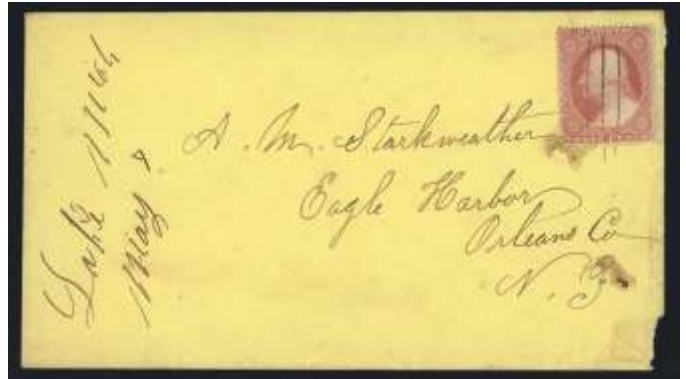 Lake Mich
May 8
A. M. Starkweather
Eagle Harbor
Orleans Co
N. Y.